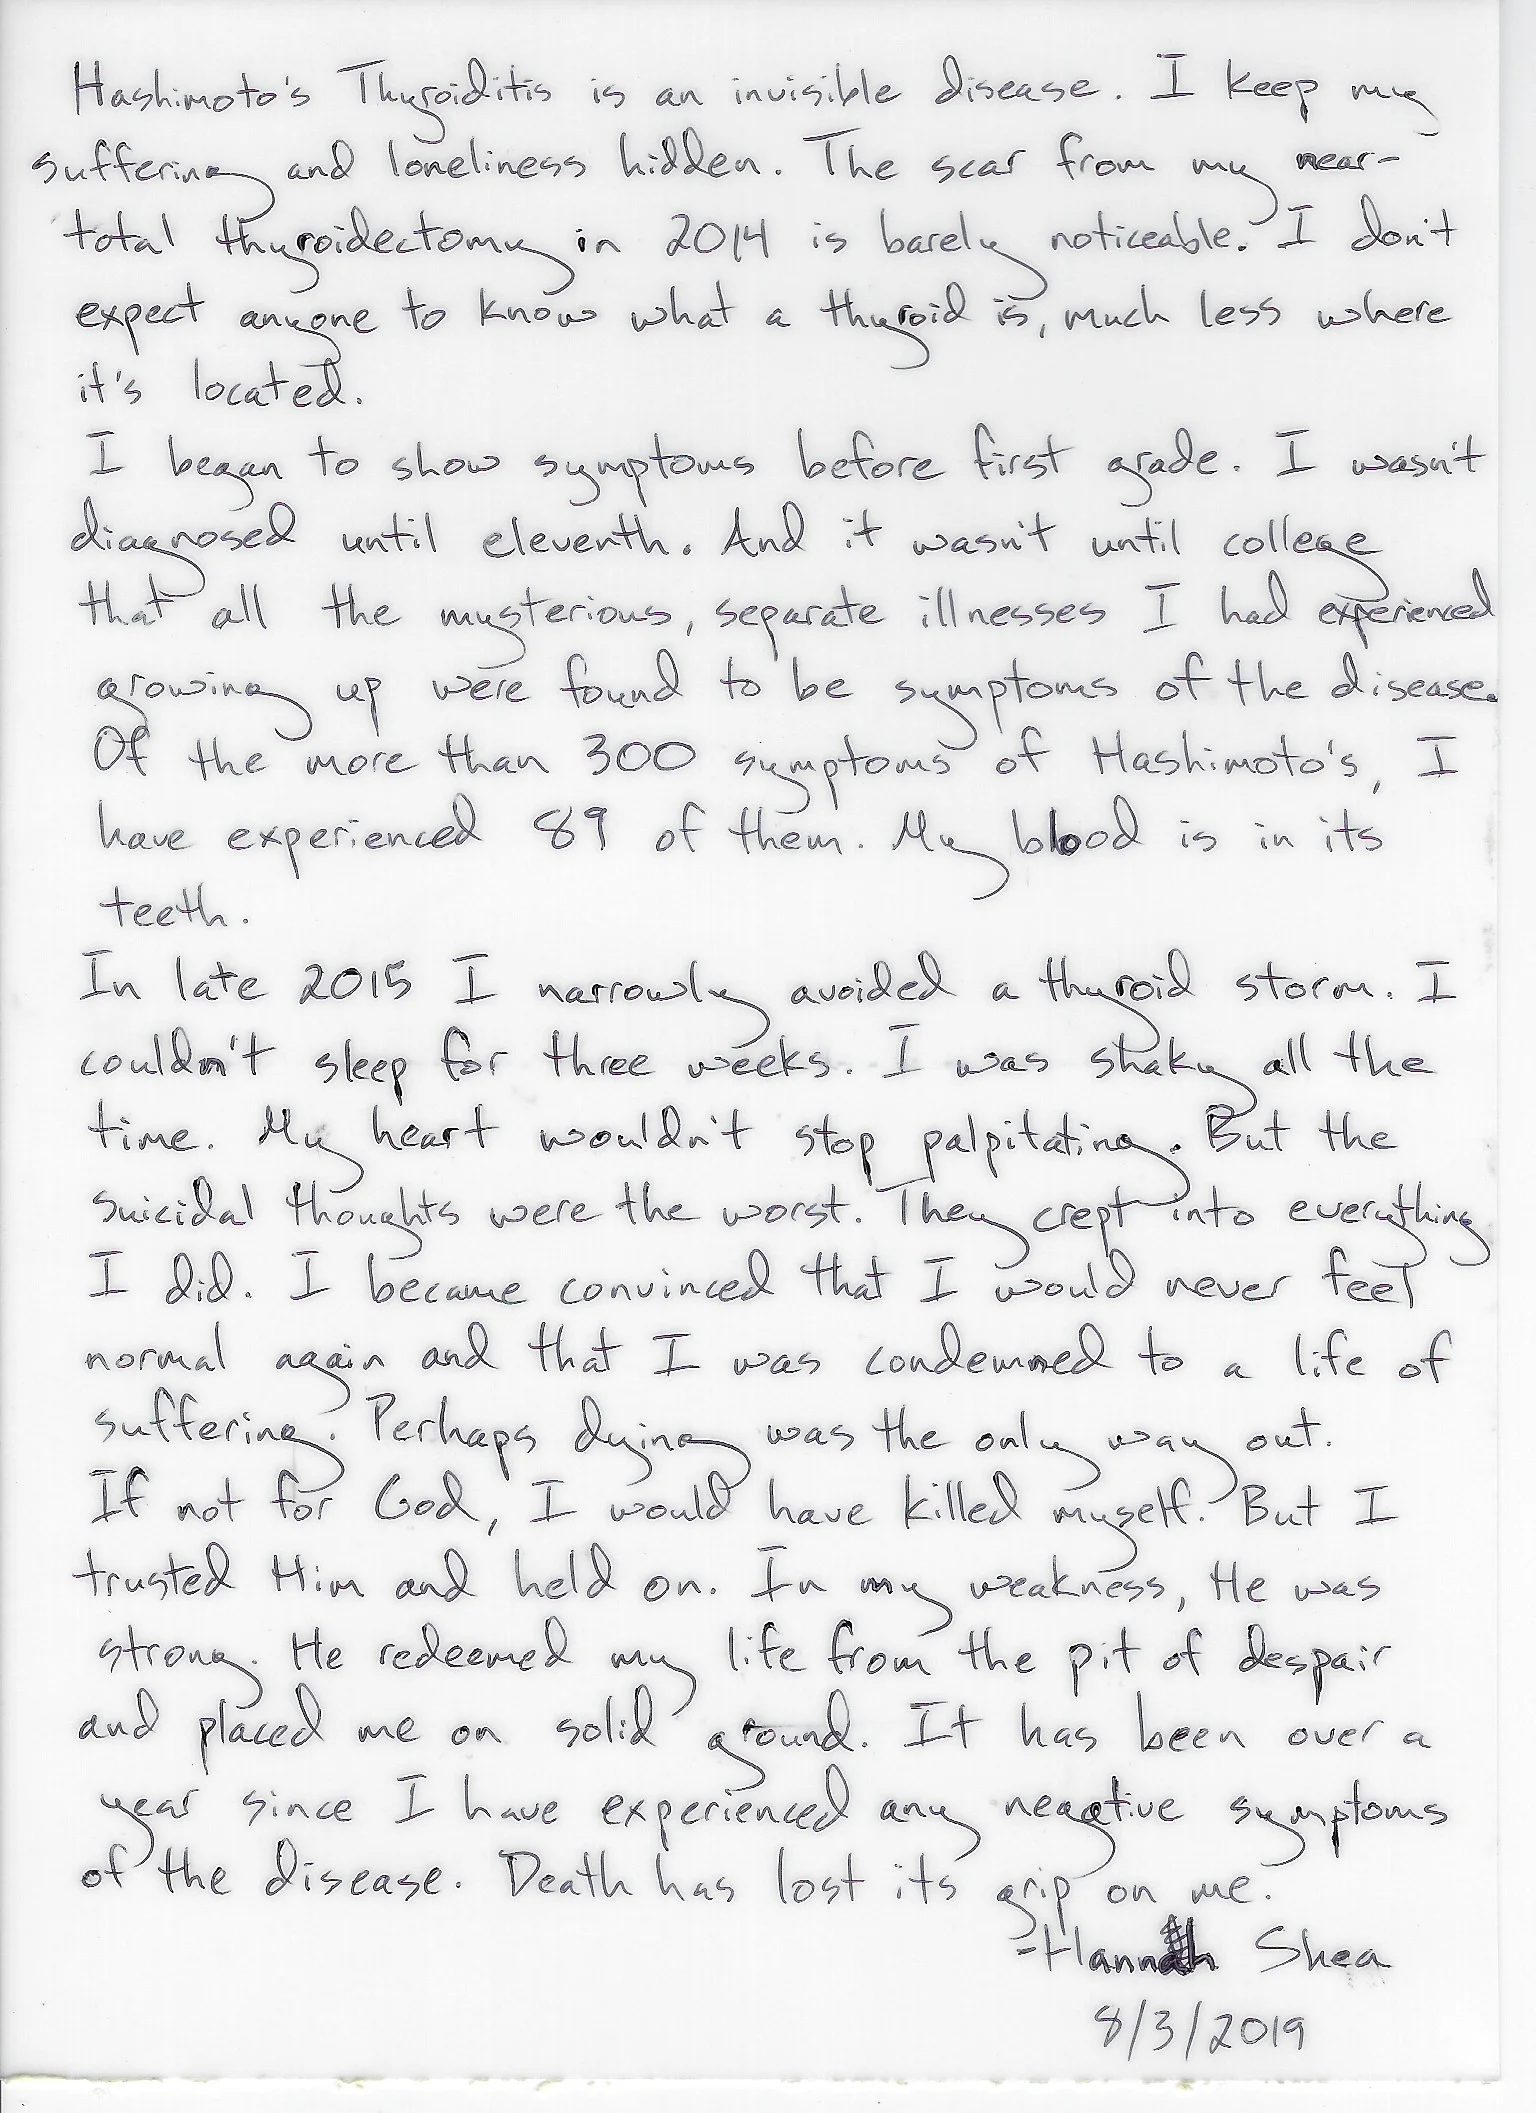 Hashimoto's Thyroiditis is an invisible disease. I keep my
suffering and loneliness hidden. The scar from my near-
total thyroidectomy in 2014 is barely noticeable. I don't
expect anyone to know what a thyroid is, much less where
it's located.
I began to show symptoms before first grade. I wasn't
diagnosed until eleventh. And it wasn't until college
that all the mysterious, separate illnesses I had experienced
growing up were found to be symptoms of the disease.
Of the more than 300 symptoms of Hashimoto's, I
have experienced 89 of them. My blood is in its
teeth.
In late 2015 I narrowly avoided a thyroid storm. I
couldn't sleep for three weeks. I was shaky all the
time. My heart wouldn't stop palpitating. But the
suicidal thoughts were the worst. They crept into everything
I did. I became convinced that I would never feel
normal again and that I was condemned to a life of
suffering. Perhaps dying was the only way out.
If not for God, I would have killed myself. But I
trusted Him and held on. In my weakness, He was
strong. He redeemed my life from the pit of despair
and placed me on solid ground. It has been over a
year since I have experienced any negative symptoms
of the disease. Death has lost its grip on me.
-Hannah Shea
8/3/2019